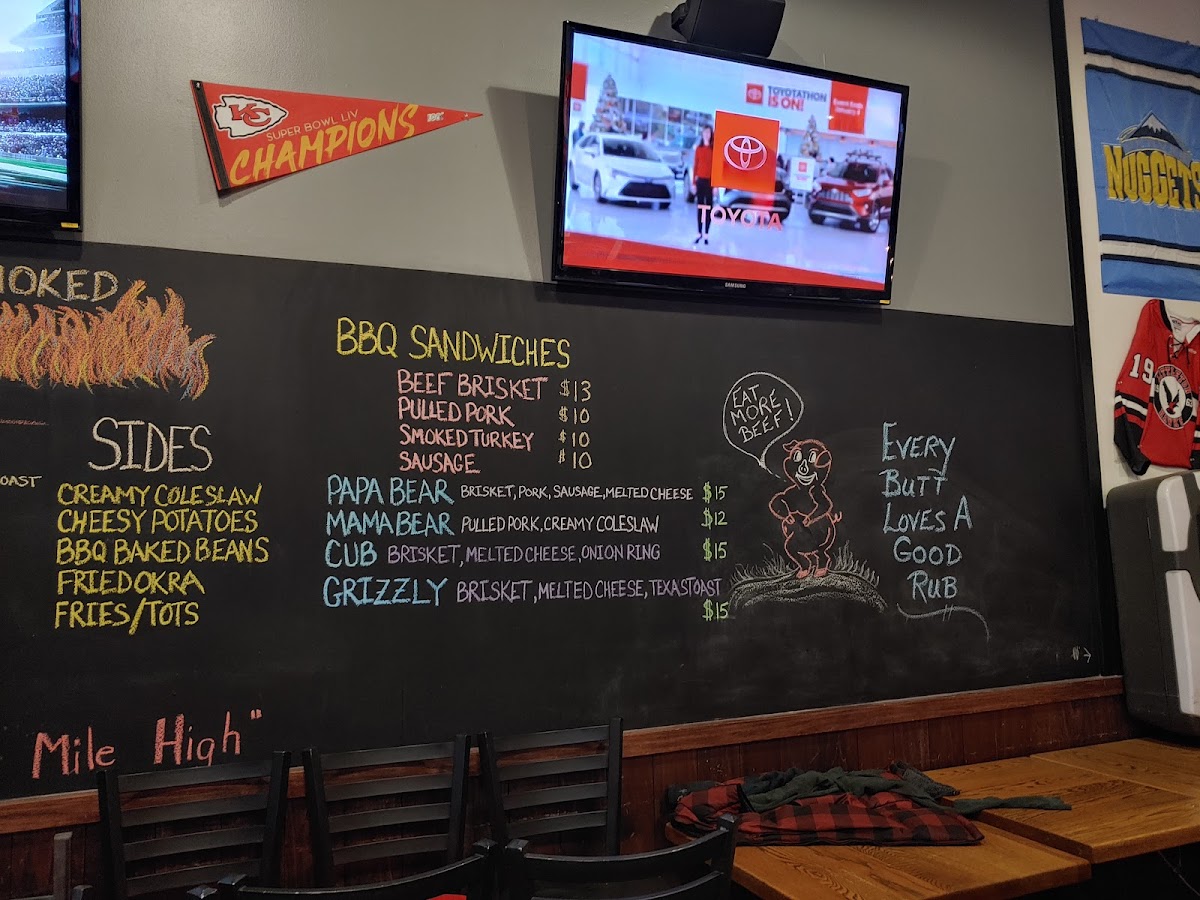 KC
SUPER BOWL LIV
CHAMPIONS
TOYOTATHON
IS ON!
TOYOTA
SAMSUNG
NUGGETS
19
MOKED
OAST
SIDES
CREAMY COLESLAW
CHEESY POTATOES
BBQ BAKED BEANS
FRIED OKRA
FRIES/TOTS
BBQ SANDWICHES
BEEF BRISKET $13
PULLED PORK $10
SMOKED TURKEY $10
SAUSAGE $10
PAPA BEAR BRISKET, PORK, SAUSAGE, MELTED CHEESE $15
MAMA BEAR PULLED PORK, CREAMY COLESLAW $12
CUB BRISKET, MELTED CHEESE, ONION RING $15
GRIZZLY BRISKET, MELTED CHEESE, TEXAS TOAST
$15
EAT
MORE
BEEF!
EVERY
BUTT
LOVES A
GOOD
RUB
Mile High"